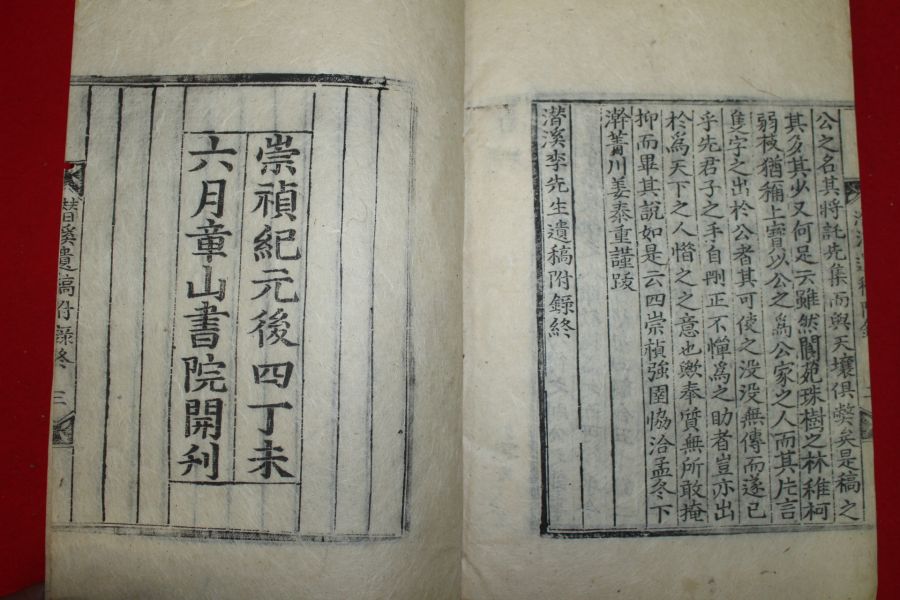 公之名其將託先集而與天壤俱弊矣是稿之
其多其少又何足云雖然閬苑珠樹之林稚柯
弱枝猶稱上賓以公之爲公家之人而其片言
隻字之出於公者其可使之沒沒無傳而遂已
乎先君子之手自刪正不憚爲之助者豈亦出
於爲天下之人惜之之意也歟奉質無所敢掩
抑而畢其說如是云四崇禎強圉協洽孟冬下
澣菁川姜泰重謹跋
潛溪李先生遺稿附錄終
崇禎紀元後四丁未
六月章山書院開刋
潛溪遺稿附錄終
三